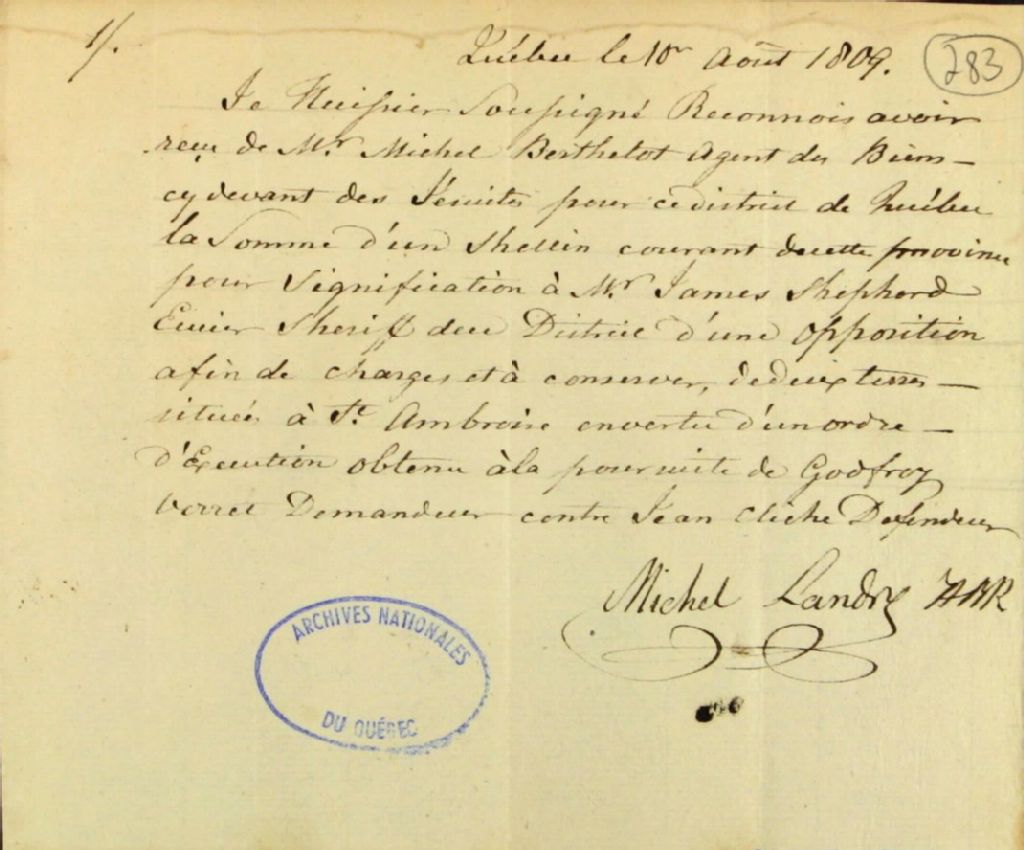 1/.
Québec le 10r Août 1809.
283
Je Huissier Soussigné Reconnois avoir
reçu de Mr. Michel Berthelot Agent des Biens
cydevant des Jésuites pour ce district de Québec
la Somme d'un Shellin courant de cette province
pour Signification à Mr. James Shepherd
Ecuier Sheriff de ce District d'une opposition
afin de charges et à conserver, de deux terres
situées à St. Ambroise en vertu d'un ordre
d'Execution obtenu à la poursuite de Godfroy
Verret Demandeur contre Jean Cliche Defendeur
Michel Landry
ARCHIVES NATIONALES
DU QUÉBEC